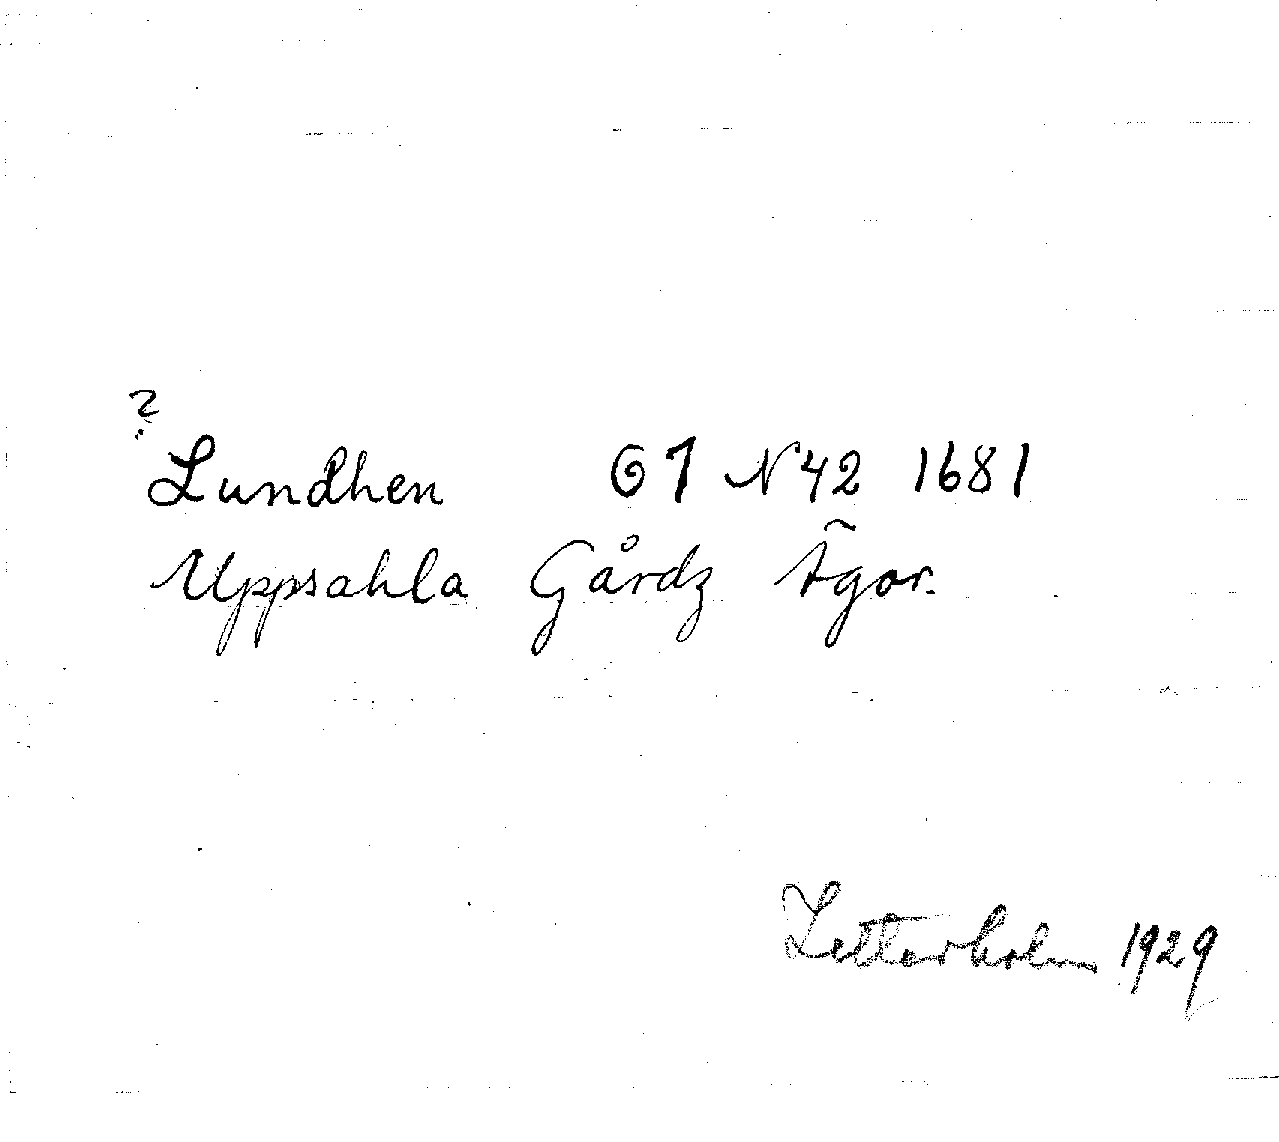 ?
Lundhen G 1 N 42 1681
Uppsahla Gårdz Ägor.
Zetterholm 1929